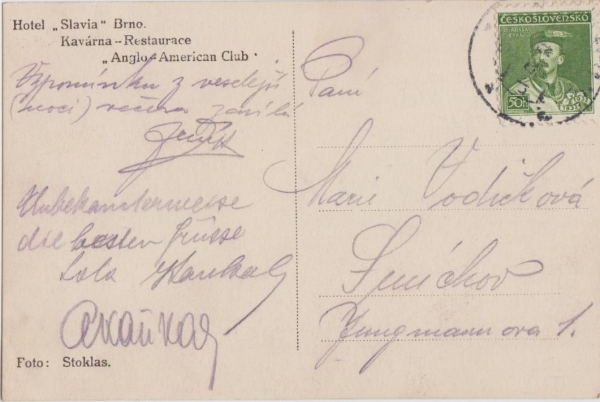 Hotel „Slavia" Brno.
Kavárna – Restaurace
„Anglo-American Club"
Vzpomínku z veselejší
(noci) večera zasílá
Unbekannterweise
die besten Grüsse
Lola Haukal
ČESKOSLOVENSKO
50h
Paní
Marie Vodičková
Jungmannova 1.
Foto: Stoklas.